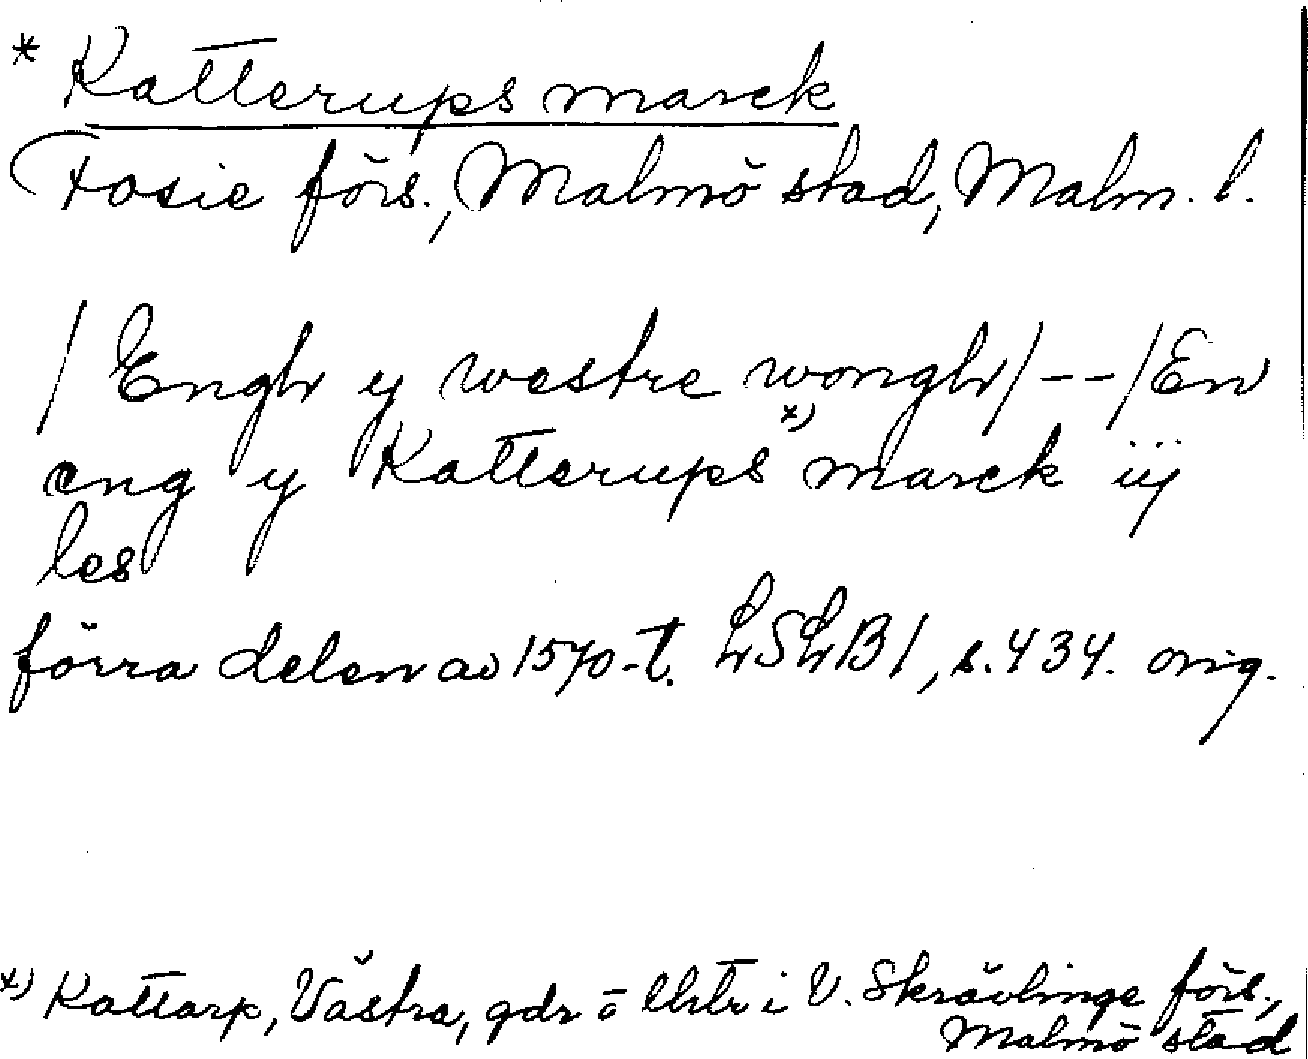 * Katterups marck
Fosie förs., Malmö stad, Malm. l.
/ Engh y westre wongh/ -- / En
eng y Katterups x) marck iij
les
förra delen av 1570-t. LSLB I, s. 434. orig.
x) Kattarp, Västra, gdr o lhtr i V. Skrävlinge förs.,
Malmö stad